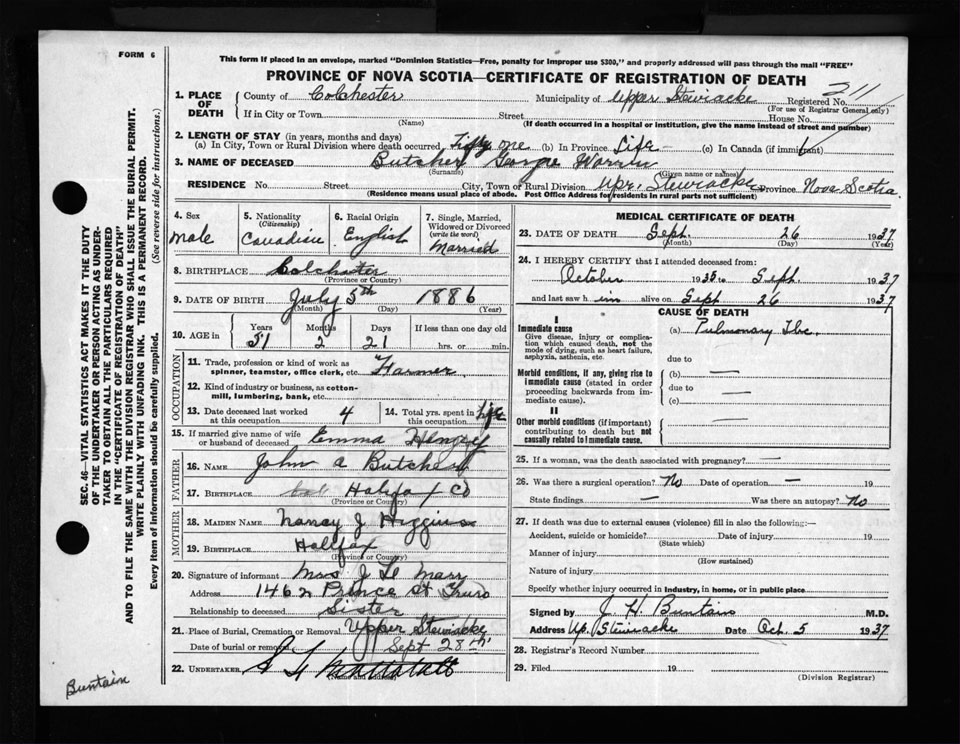 FORM 6
This form if placed in an envelope, marked "Dominion Statistics—Free, penalty for improper use $300," and properly addressed will pass through the mail "FREE"
PROVINCE OF NOVA SCOTIA—CERTIFICATE OF REGISTRATION OF DEATH
SEC. 46—VITAL STATISTICS ACT MAKES IT THE DUTY
OF THE UNDERTAKER OR PERSON ACTING AS UNDER-
TAKER TO OBTAIN ALL THE PARTICULARS REQUIRED
IN THE "CERTIFICATE OF REGISTRATION OF DEATH"
AND TO FILE THE SAME WITH THE DIVISION REGISTRAR WHO SHALL ISSUE THE BURIAL PERMIT.
WRITE PLAINLY WITH UNFADING INK. THIS IS A PERMANENT RECORD.
Every item of information should be carefully supplied. (See reverse side for instructions.)
1. PLACE OF DEATH County of Colchester Municipality of Upper Stewiacke Registered No. 211
(For use of Registrar General only)
If in City or Town Street House No.
(Name) (If death occurred in a hospital or institution, give the name instead of street and number)
2. LENGTH OF STAY (in years, months and days)
(a) In City, Town or Rural Division where death occurred Fifty one (b) In Province Life (c) In Canada (if immigrant)
3. NAME OF DECEASED Butcher George Warren
(Surname) (Given name or names)
RESIDENCE No. Street City, Town or Rural Division Upr. Stewiacke Province Nova Scotia
(Residence means usual place of abode. Post Office Address for residents in rural parts not sufficient)
4. Sex male
5. Nationality (Citizenship) Canadian
6. Racial Origin English
7. Single, Married, Widowed or Divorced (write the word) Married
8. BIRTHPLACE Colchester
(Province or Country)
9. DATE OF BIRTH July 5th 1886
(Month) (Day) (Year)
10. AGE in Years 51 Months 2 Days 21 If less than one day old hrs. or min.
OCCUPATION
11. Trade, profession or kind of work as spinner, teamster, office clerk, etc. Farmer
12. Kind of industry or business, as cotton-mill, lumbering, bank, etc.
13. Date deceased last worked at this occupation 4 14. Total yrs. spent in this occupation Life
15. If married give name of wife or husband of deceased Emma
FATHER
16. NAME John A Butcher
17. BIRTHPLACE Halifax Co
(Province or Country)
MOTHER
18. MAIDEN NAME Nancy J Higgins
19. BIRTHPLACE Halifax
(Province or Country)
20. Signature of informant Mrs J Le Marr
Address 1462 Prince St Truro
Relationship to deceased Sister
21. Place of Burial, Cremation or Removal Upper Stewiacke
Date of burial or removal Sept 28th
22. UNDERTAKER
MEDICAL CERTIFICATE OF DEATH
23. DATE OF DEATH Sept. 26 1937
(Month) (Day) (Year)
24. I HEREBY CERTIFY that I attended deceased from:
October 1935 to Sept. 1937
and last saw him alive on Sept 26 1937
CAUSE OF DEATH
I
Immediate cause (a) Pulmonary Tbc.
Give disease, injury or complication which caused death, not the mode of dying, such as heart failure, asphyxia, asthenia, etc. due to
Morbid conditions, if any, giving rise to immediate cause (stated in order proceeding backwards from immediate cause). (b) — due to (c) —
II
Other morbid conditions (if important) contributing to death but not causally related to immediate cause. —
25. If a woman, was the death associated with pregnancy? —
26. Was there a surgical operation? No Date of operation — 19
State findings — Was there an autopsy? No
27. If death was due to external causes (violence) fill in also the following:—
Accident, suicide or homicide? Date of injury 19
(State which)
Manner of injury
(How sustained)
Nature of injury
Specify whether injury occurred in Industry, in home, or in public place
Signed by J. H. Buntain M.D.
Address Up. Stewiacke Date Oct. 5 1937
28. Registrar's Record Number
29. Filed 19
(Division Registrar)
Buntain